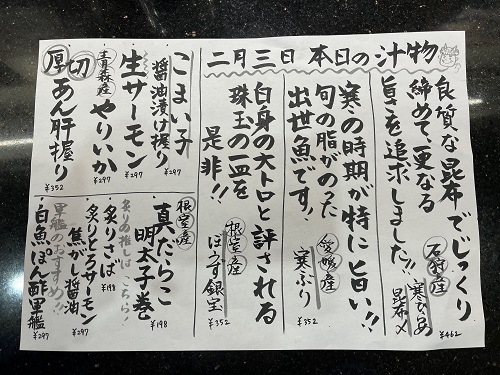 二月三日 本日の汁物
良質な昆布でじっくり
締めて、更なる
旨さを追求しました!!
石狩産
寒ひらめ
昆布〆
¥462
寒の時期が特に旨い!!
旬の脂がのった
出世魚です!
愛媛産
寒ぶり
¥352
白身の大トロと評される
珠玉の一皿を
是非!!
根室産
ほうず銀宝
¥352
こまい子
醤油漬け握り
¥297
生サーモン
¥297
青森産
やりいか
¥297
厚切
あん肝握り
¥352
根室産
真たらこ
明太子巻
¥198
炙りの推しは、こちら!
炙りさば
¥198
炙りとろサーモン
焦がし醤油
¥297
軍艦のおすすめ!!
白魚ぽん酢軍艦
¥297